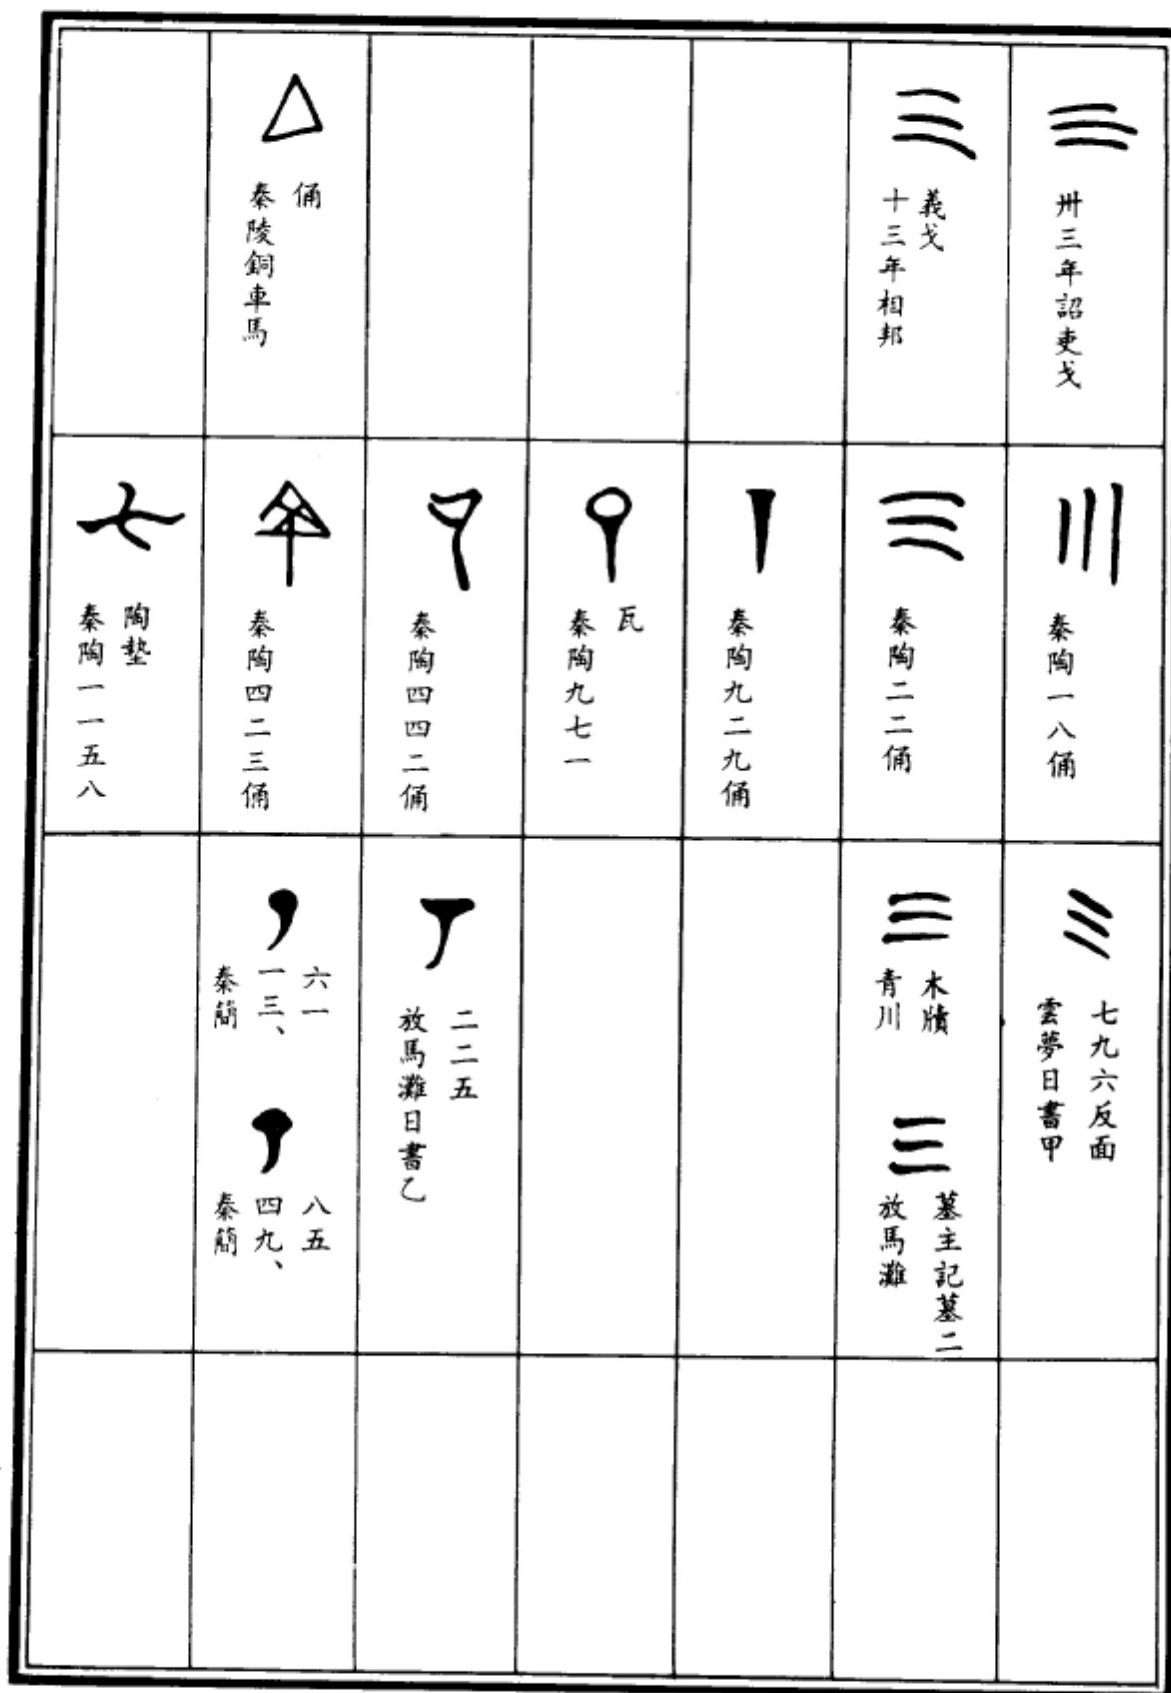 三
卅三年詔吏戈
三
十三年相邦
義戈
秦陵銅車馬
俑
秦陶一八俑
三
秦陶二二俑
秦陶九二九俑
秦陶九七一
瓦
秦陶四四二俑
秦陶四二三俑
七
秦陶一一五八
陶墊
三
雲夢日書甲
七九六反面
三
青川
木牘
三
放馬灘
墓主記墓二
放馬灘日書乙
二二五
秦簡
一三、
六一
秦簡
四九、
八五